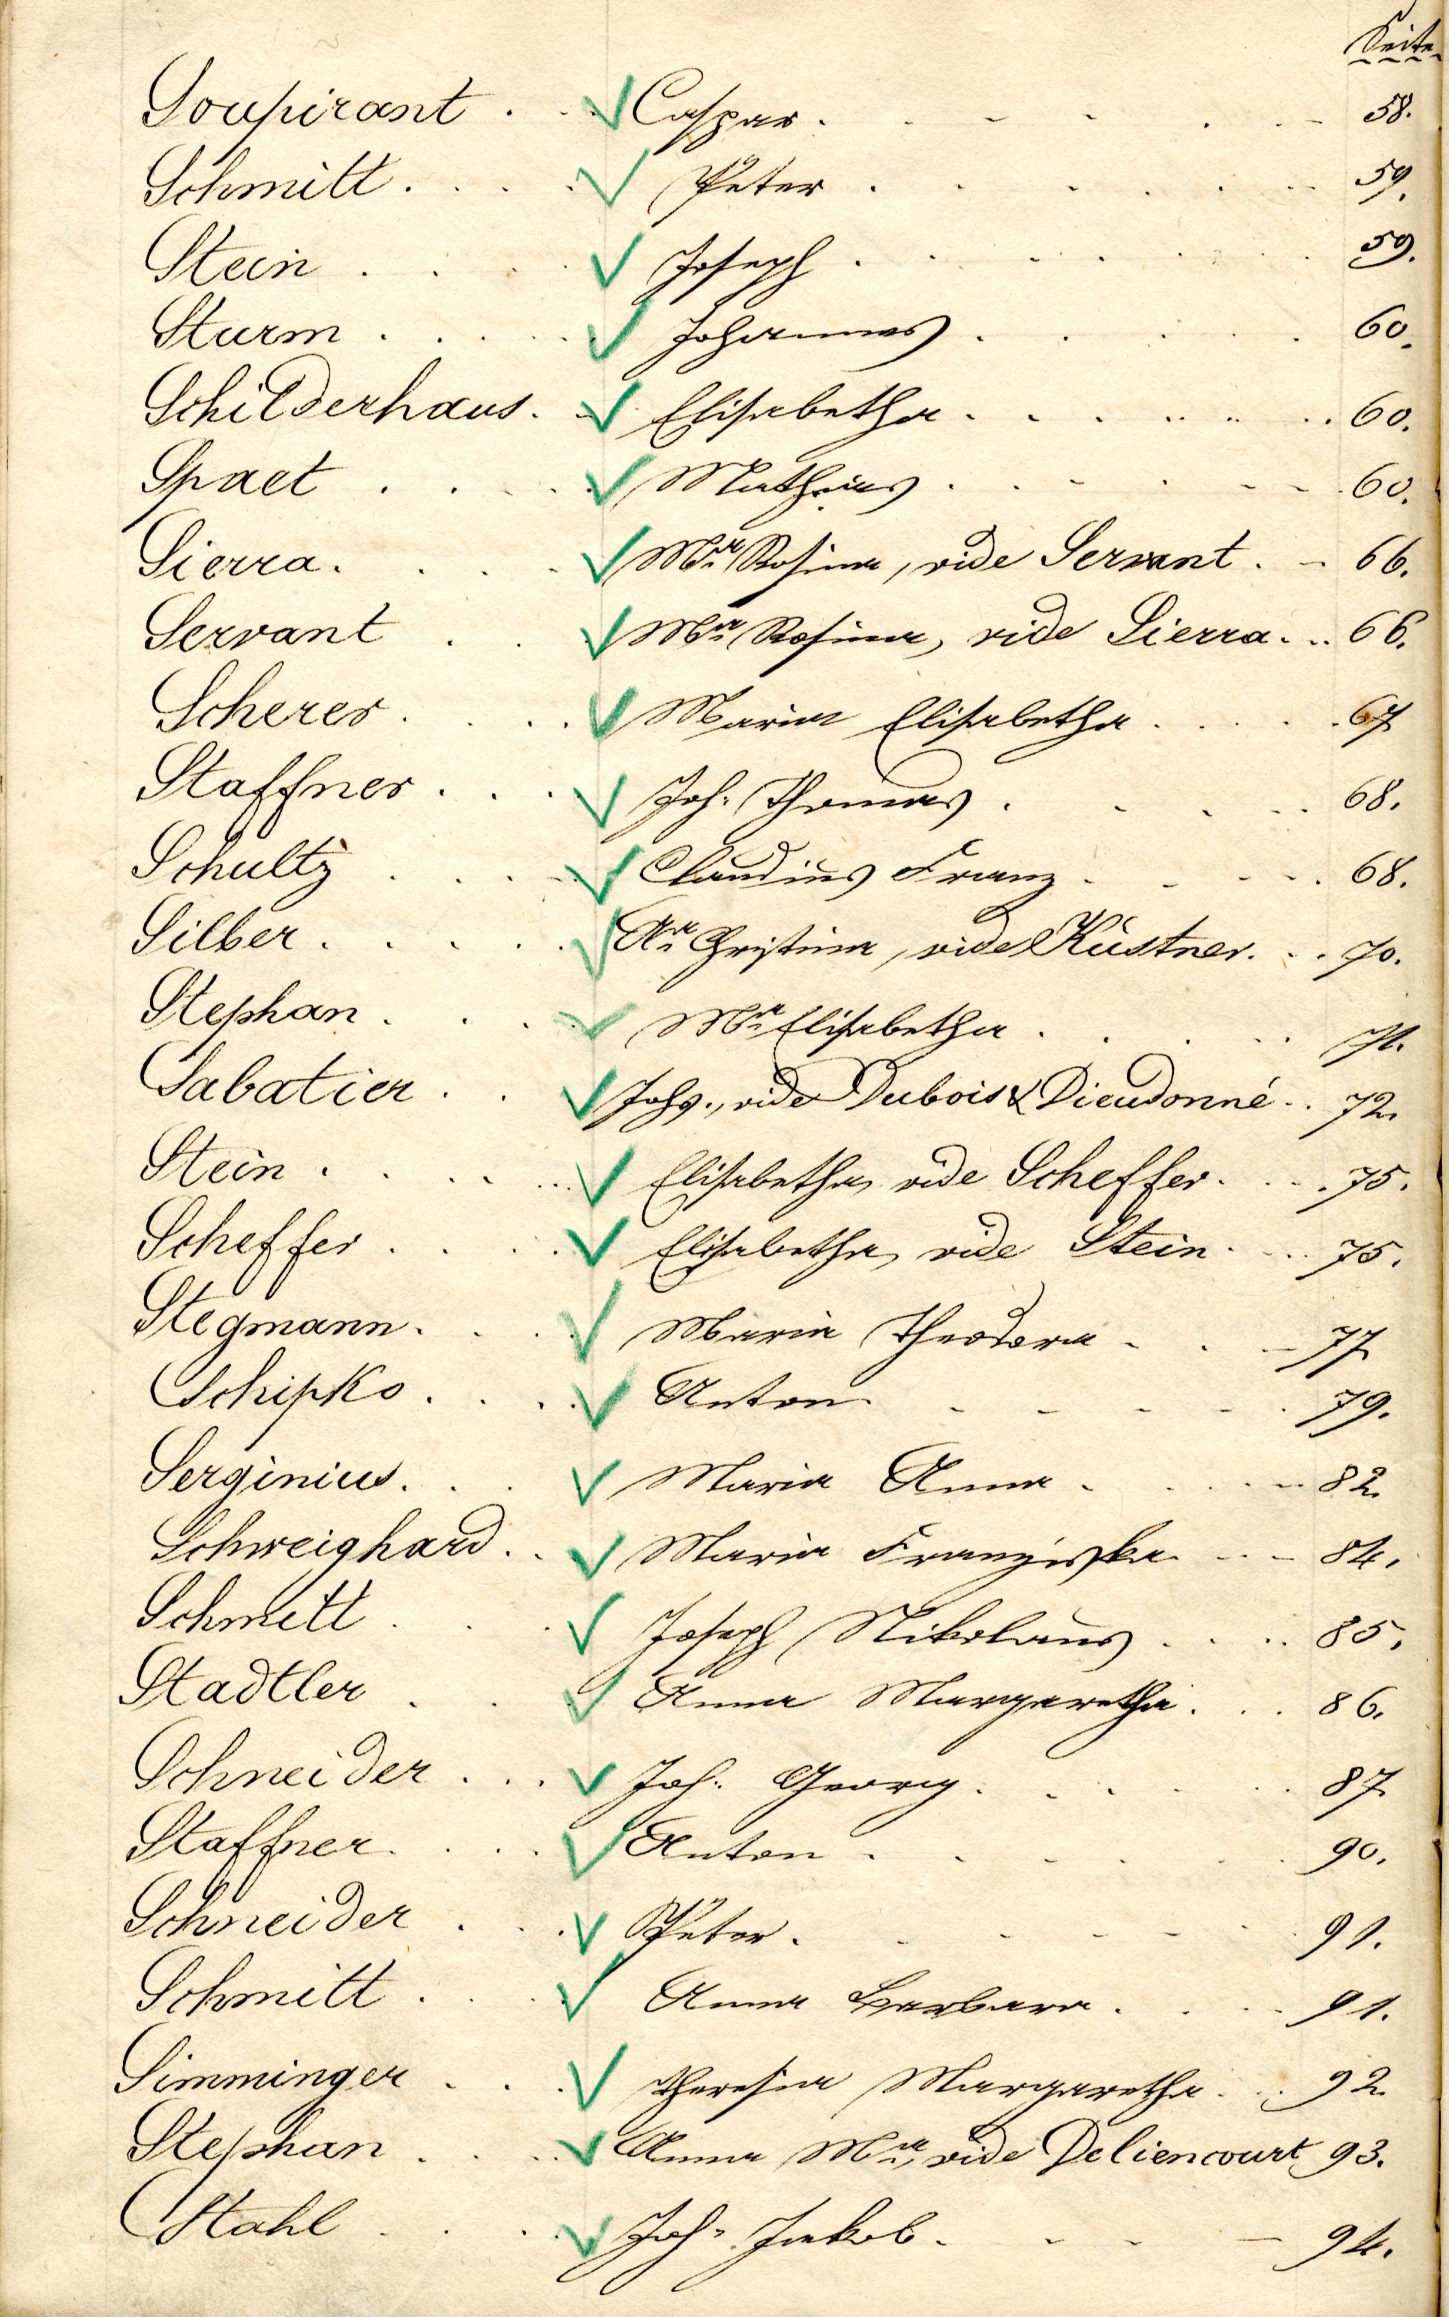 Seite
Soupirant . . Caspar. . . . . . 58.
Schmitt . . . . Peter . . . . . . 59.
Stein . . . . Joseph . . . . . . 59.
Sturm . . . . Johannes . . . . . 60.
Schilderhaus. . Elisabetha . . . . . . 60.
Spaet . . . . Mathias . . . . . . 60.
Sierra. . . . . Mª Rosina, vide Servant . . 66.
Servant . . . Mª Rosina, vide Sierra. . . 66.
Scherer . . . . Maria Elisabetha . . . . 67
Staffner . . . Joh. Thomas . . . . . 68.
Schultz . . . . Claudius Franz . . . . . 68.
Silber . . . . . Aª Christina, vide Küstner. . . 70.
Stephan . . . . Mª Elisabetha . . . . . 71.
Sabatier . . . Johs., vide Dubois & Dieudonné . . 72.
Stein . . . . . Elisabetha, vide Scheffer. . . . 75.
Scheffer . . . . Elisabetha, vide Stein . . . 75.
Stegmann . . . Maria Theodora . . . 77
Schipko . . . . Anton . . . . . 79.
Serginius. . . Maria Anna . . . . 82.
Schweighard . . Maria Franziska . . . 84.
Schmitt . . . Joseph Nikolaus . . . . 85.
Stadtler . . . Anna Margaretha . . . 86.
Schneider . . . Joh. Georg . . . . . 87
Staffner . . . . Anton . . . . . . 90.
Schneider . . . Peter . . . . . . 91.
Schmitt . . . . Anna Barbara . . . 91.
Simminger . . . Theresia Margaretha . . . 92.
Stephan . . . . Anna Mª, vide Deliencourt 93.
Stahl . . . . Joh. Jakob . . . . 94.